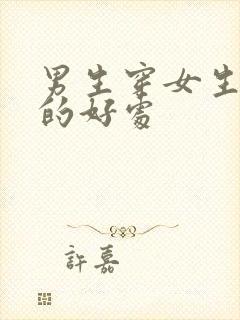 男生穿女生
的好處
許嘉